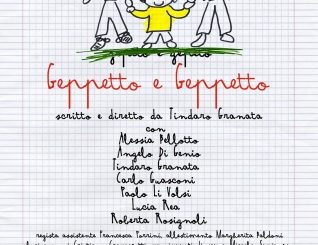 Geppetto e Geppetto
scritto e diretto da Tindaro Granata
con
Alessia Bellotto
Angelo Di Genio
Tindaro Granata
Carlo Guasconi
Paolo Li Volsi
Lucia Rea
Roberta Rosignoli
regista assistente Francesca Porrini, allestimento Margherita Baldoni